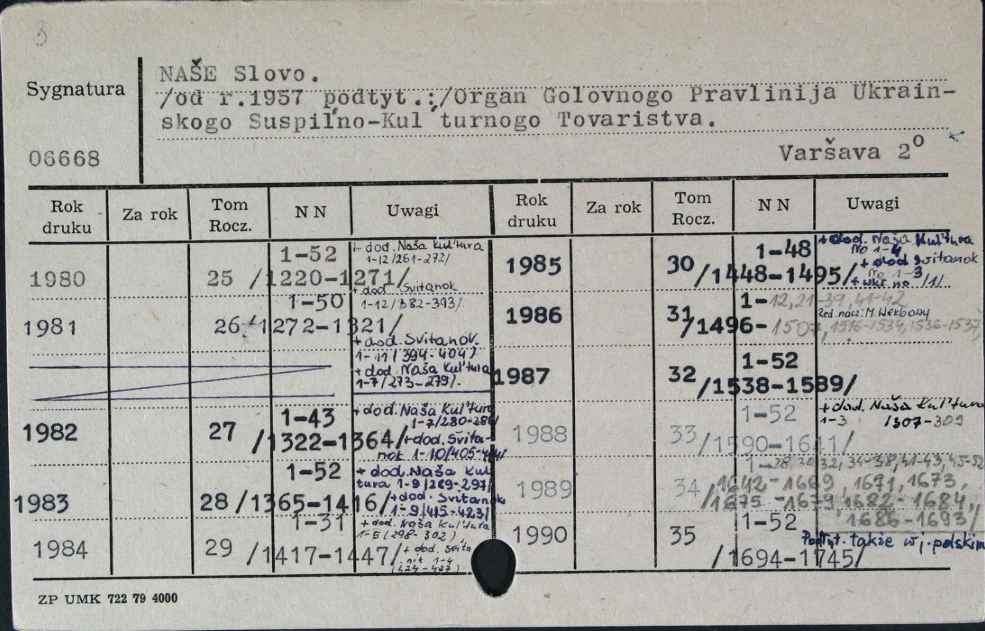 3
NAŠE Slovo.
/od r.1957 podtyt.:/Organ Golovnogo Pravlinija Ukrain-
skogo Suspil'no-Kul'turnogo Tovaristva.
Sygnatura
06668
Varšava 2°
Rok druku Za rok Tom Rocz. NN Uwagi Rok druku Za rok Tom Rocz. NN Uwagi
1980 25 1-52 /1220-1271/
+ dod. Naša Kul'tura
1-12/261-272/
+ dod. Svitanok
1-12/382-393/
1981 26 1-50 /1272-1321/
+ dod. Svitanok
1-11/394-404/
+ dod. Naša Kul'tura
1-7/273-279/.
1982 27 1-43 /1322-1364/
+ dod. Naša Kul'tura
1-7/280-286/
+ dod. Svita-
nok 1-10/405-
1983 28 1-52 /1365-1416/
+ dod. Naša Kul
tura 1-9/289-297/
+ dod. Svitanok
1-9/415-423/
1984 29 1-31 /1417-1447/
+ dod. Naša Kul'tura
/298-302/
+ dod. Svita
1-4
/424-427/
1985 30 1-48 /1448-1495/
+ dod. Naša Kul'tura
No 1-4
+ dod Svitanok
No 1-3
+ wkł. no /1/
1986 31 1-12,21-39,41-42 /1496-1507, 1516-1534, 1536-1537/
Red. nacz: M. Werbowy
1987 32 1-52 /1538-1589/
1988 33 1-52 /1590-1641/
+ dod. Naša Kul'tura
1-3 /307-309
1989 34 1-28,30,32,34-38,41-43,45-52
/1642-1669, 1671, 1673,
1675-1679, 1682-1684,
1686-1693/
1990 35 1-52 /1694-1745/
Podtyt. także w j. polskim
ZP UMK 722 79 4000